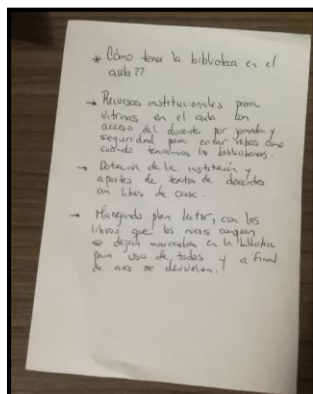 * Cómo tener la biblioteca en el
aula??
→ Recursos institucionales para
vitrinas en el aula con
acceso del docente por jornada y
seguridad para evitar robos como
cuando teníamos las bibliobanos.
→ Dotación de la institución y
aportes de textos de docentes
con libros de clase.
→ Manejando plan lector, con los
libros que los niños compran
se dejan marcados en la biblioteca
para uso de todos y a final
de año se devuelven.